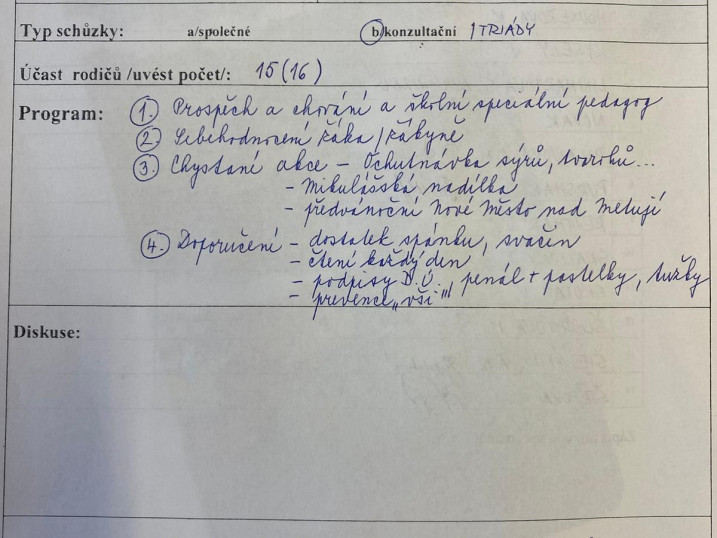 Typ schůzky: a/společné b/konzultační /TRIÁDY
Účast rodičů /uvést počet/: 15 (16)
Program: 1. Prospěch a chování a školní speciální pedagog
2. Sebehodnocení žáka/žákyně
3. Chystané akce - Ochutnávka sýrů, tvarohů...
- Mikulášská nadílka
- předvánoční Nové Město nad Metují
4. Doporučení - dostatek spánku, svačin
- čtení každý den
- podpisy D.Ú., penál + pastelky, tužky
- prevence „vší"
Diskuse: